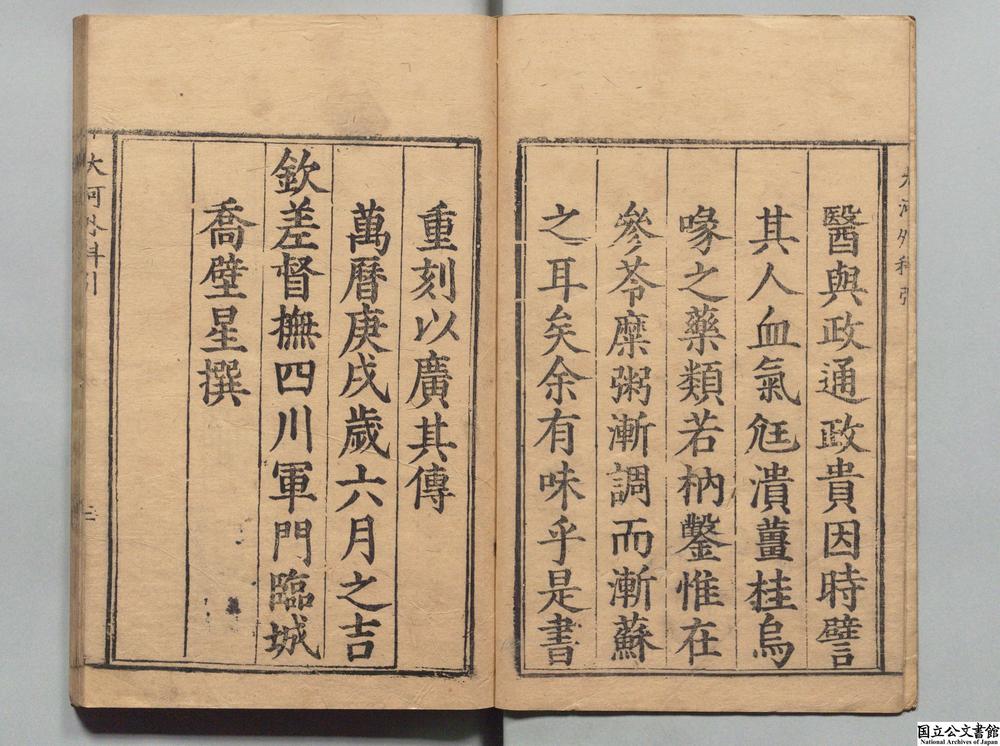 醫與政通政貴因時譬
其人血氣尩潰薑桂烏
喙之藥類若枘鑿惟在
參苓糜粥漸調而漸蘇
之耳矣余有味乎是書
重刻以廣其傳
萬曆庚戌歲六月之吉
欽差督撫四川軍門臨城
喬壁星撰
大河外科引
国立公文書館
National Archives of Japan